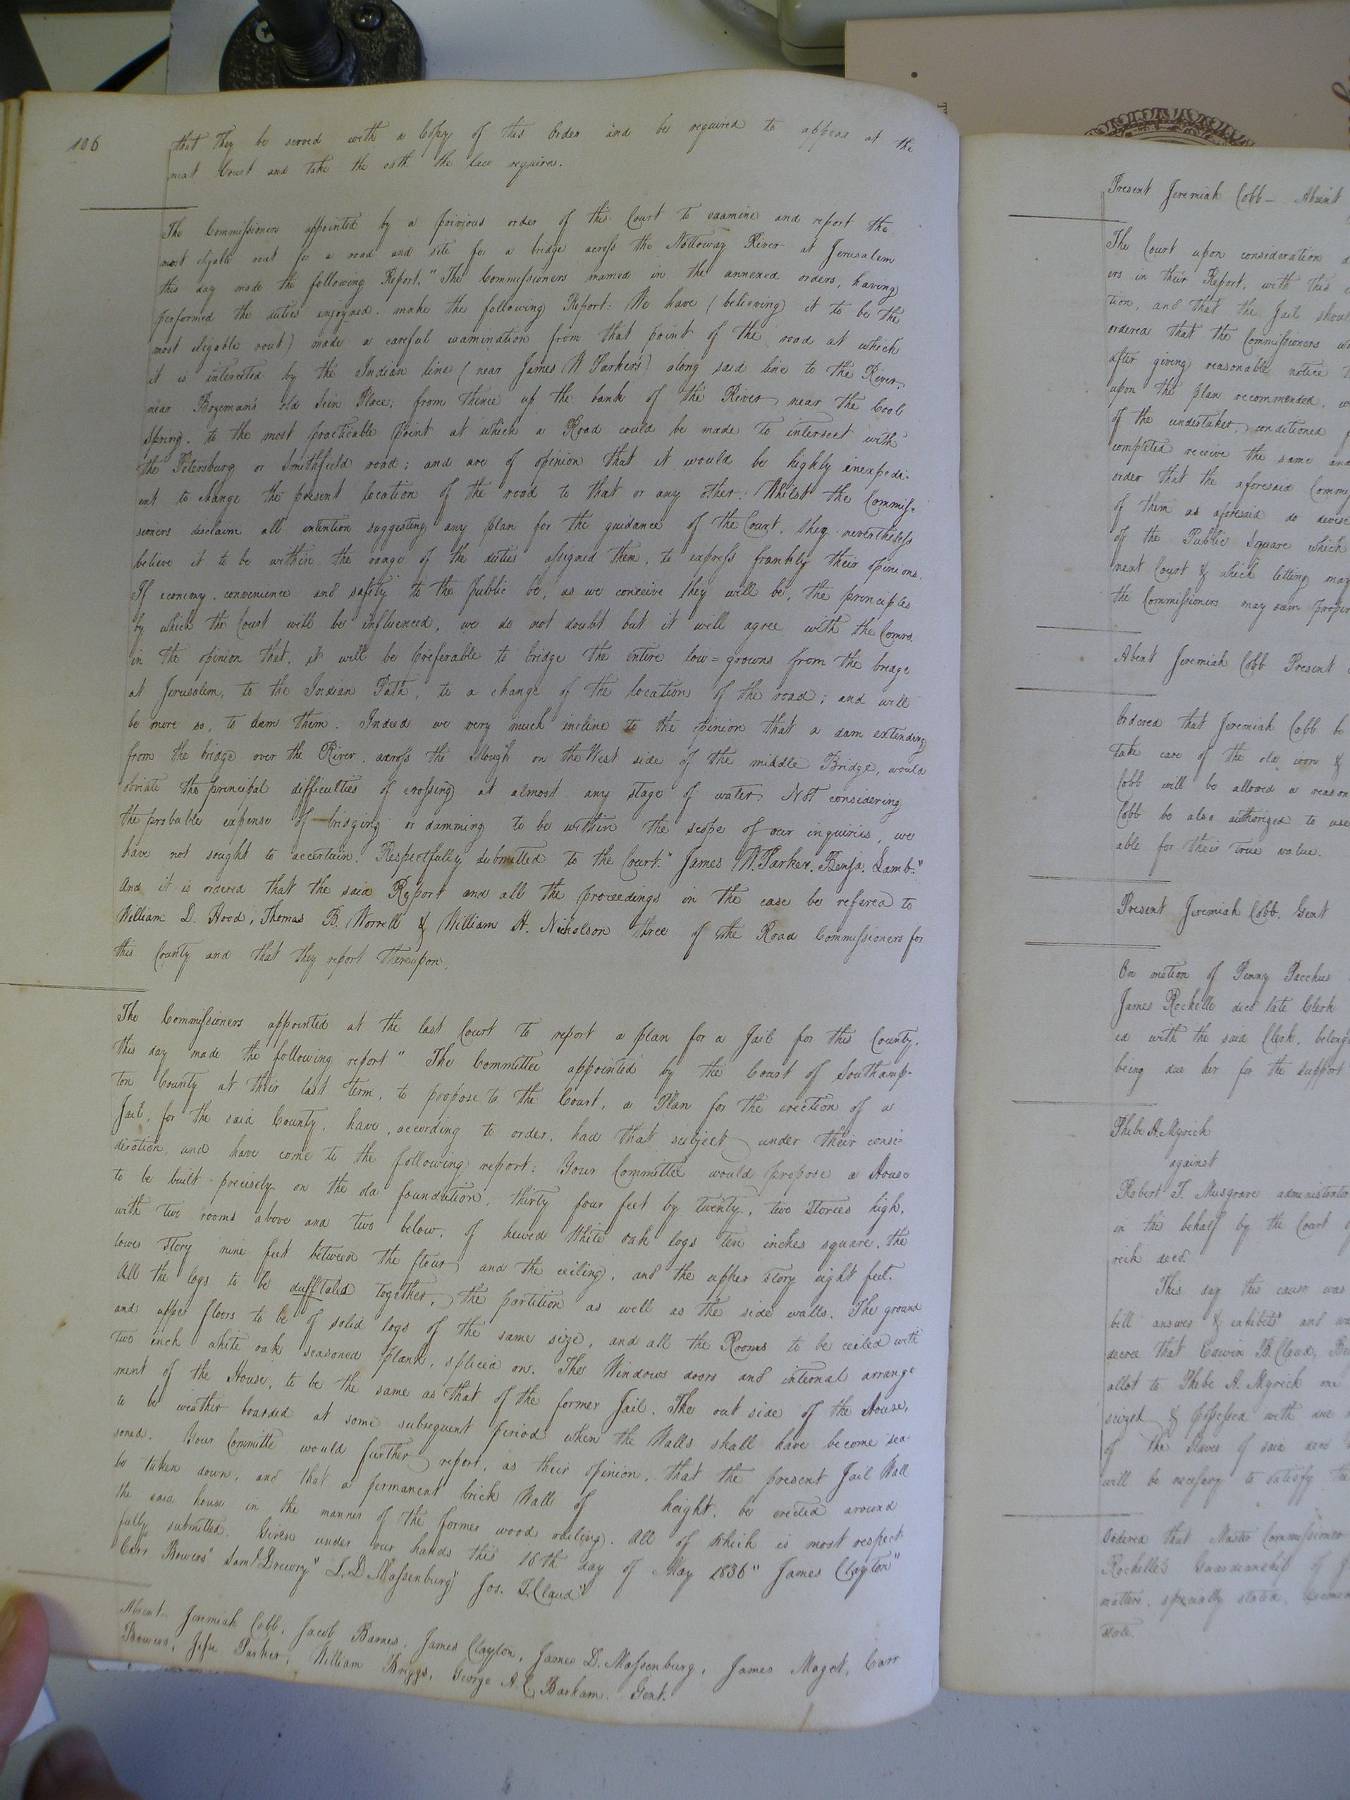 106
that they be served with a Copy of this Order and be required to appear at the
next Court and take the oath the law requires.
The Commissioners appointed by a privious order of this Court to examine and report the
most eligable rout for a road and site for a bridge across the Nottoway River at Jerusalem
this day made the following Report, "The Commissioners named in the annexed orders, having
performed the duties enjoyned, make the following Report. We have (believing it to be the
most eligable rout) made a careful examination from that point of the road at which
it is intersected by the Indian line (near James W Parker's) along said line to the River,
near Bozeman's old Sein Place; from thence up the bank of the River near the Cool
Spring, to the most practicable point at which a Road could be made to intersect with
the Petersburg or Smithfield road; and are of opinion that it would be highly inexpedi-
ent to change the present location of the road to that or any other. Whilst the Commis-
sioners disclaim all intention suggesting any plan for the guidance of the Court, they nevertheless
believe it to be within the range of the duties assigned them, to express frankly their opinions.
If economy, convenience and safety to the public be, as we conceive they will be, the principles
by which the Court will be influenced, we do not doubt but it will agree with the Comrs.
in the opinion that, it will be preferable to bridge the entire low=growns from the bridge
at Jerusalem, to the Indian Path, to a change of the location of the road; and will
be more so, to dam them. Indeed we very much incline to the opinion that a dam extending
from the bridge over the River, across the slough on the West side of the middle Bridge, would
obviate the principal difficulties of crossing at almost any stage of water. Not considering
the probable expense of bridging or damming to be within the scope of our inquiries, we
have not sought to ascertain. Respectfully submitted to the Court." James W. Parker, Benja. Lamb."
And it is ordered that the said Report and all the proceedings in the case be refered to
William D. Hood, Thomas B. Worrell & William H. Nicholson three of the Road Commissioners for
this County and that they report thereupon.
The Commissioners appointed at the last Court to report a plan for a Jail for this County,
this day made the following report "The Committee appointed by the Court of Southamp-
ton County at their last term, to propose to the Court, a Plan for the erection of a
Jail, for the said County, have, according to order, had that subject under their consi-
deration, and have come to the following report: Your Committee would propose a House
to be built precisely on the old foundation, thirty four feet by twenty, two stories high,
with two rooms above and two below, of hewed White oak logs ten inches square, the
lower story nine feet between the flour and the ceiling, and the upper story eight feet.
All the logs to be dufftaled together, the partition as well as the side walls. The ground
and upper floors to be of solid logs of the same size, and all the Rooms to be ceiled with
two inch white oak seasoned plank, spliced on. The Windows doors and internal arrange
ment of the House, to be the same as that of the former Jail. The out side of the House,
to be weather boarded at some subsequent period when the Walls shall have become sea-
soned. Your Committe would further report, as their opinion, that the present Jail Wall
be taken down, and that a permanent brick Wall of height, be erected around
the said house in the manner of the former wood railing. All of which is most respect
fully submitted. Given under our hands this 16th day of May 1836" James Clayton"
Carr Bowers" Saml. Drewry" J. D. Massenburg" Jos. T. Claud"
Absent Jeremiah Cobb, Jacob Barnes, James Clayton, James D. Massenburg, James Maget, Carr
Bowers, Jesse Parker, William Briggs, George A. C Barham. Gent.
Present Jeremiah Cobb - Absent
The Court upon consideration
ers in their Report, with this
tion, and that the Jail shou
ordered that the Commissioners
after giving reasonable notice
upon the plan recommended,
of the undertaker, conditioned
completed receive the same and
order that the aforesaid Comm
of them as aforesaid do
of the Public Square which
next Court & which letting may
the Commissioners may
Absent Jeremiah Cobb Present
Ordered that Jeremiah Cobb be
take care of the old iron &
Cobb will be allowed a reason
Cobb be also authorized to use
able for their true value.
Present Jeremiah Cobb. Gent
On motion of Penny Bacchus
James Rochelle decd. late Clerk
ed with the said Clerk, belong
being due her for the support
Phebe A. Myrick
against
Robert T. Musgrave administrator
in this behalf by the Court
rick decd.
This day this cause was
bill answer & exhibits and
decree that Edwin B. Claud,
allot to Phebe A. Myrick one
seized & possessed with
of the slaves of said
will be necessary to satisfy
Ordered that Master Commissioner
Rochelle's Guardianship of
matters, specially stated,